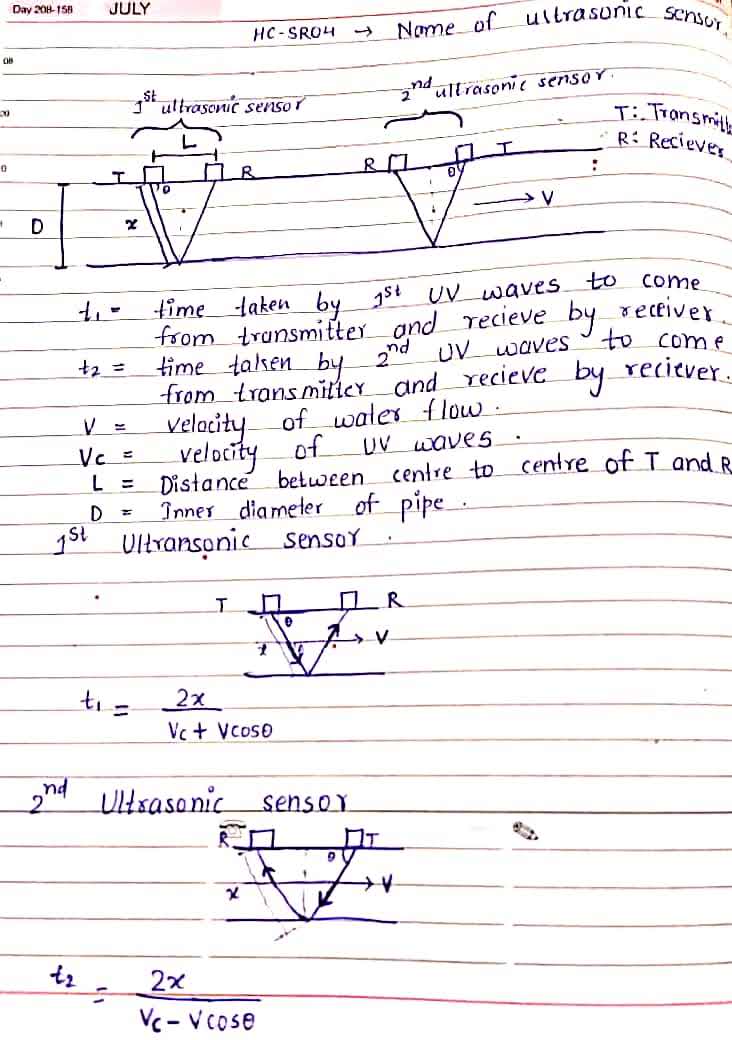 Day 208-158 JULY
HC-SR04 → Name of ultrasonic sensor.
1st ultrasonic sensor
2nd ultrasonic sensor.
T: Transmitte
R: Reciever
L
T R R T
θ θ
D x → V
t₁ = time taken by 1st UV waves to come
from transmitter and recieve by receiver.
t₂ = time taken by 2nd UV waves to come
from transmitter and recieve by reciever.
V = velocity of water flow.
Vc = velocity of UV waves.
L = Distance between centre to centre of T and R
D = Inner diameter of pipe.
1st Ultransonic sensor.
T R
θ
x → V
t₁ = 2x
Vc + Vcosθ
2nd Ultrasonic sensor
R T
θ
x → V
t₂ = 2x
Vc - Vcosθ